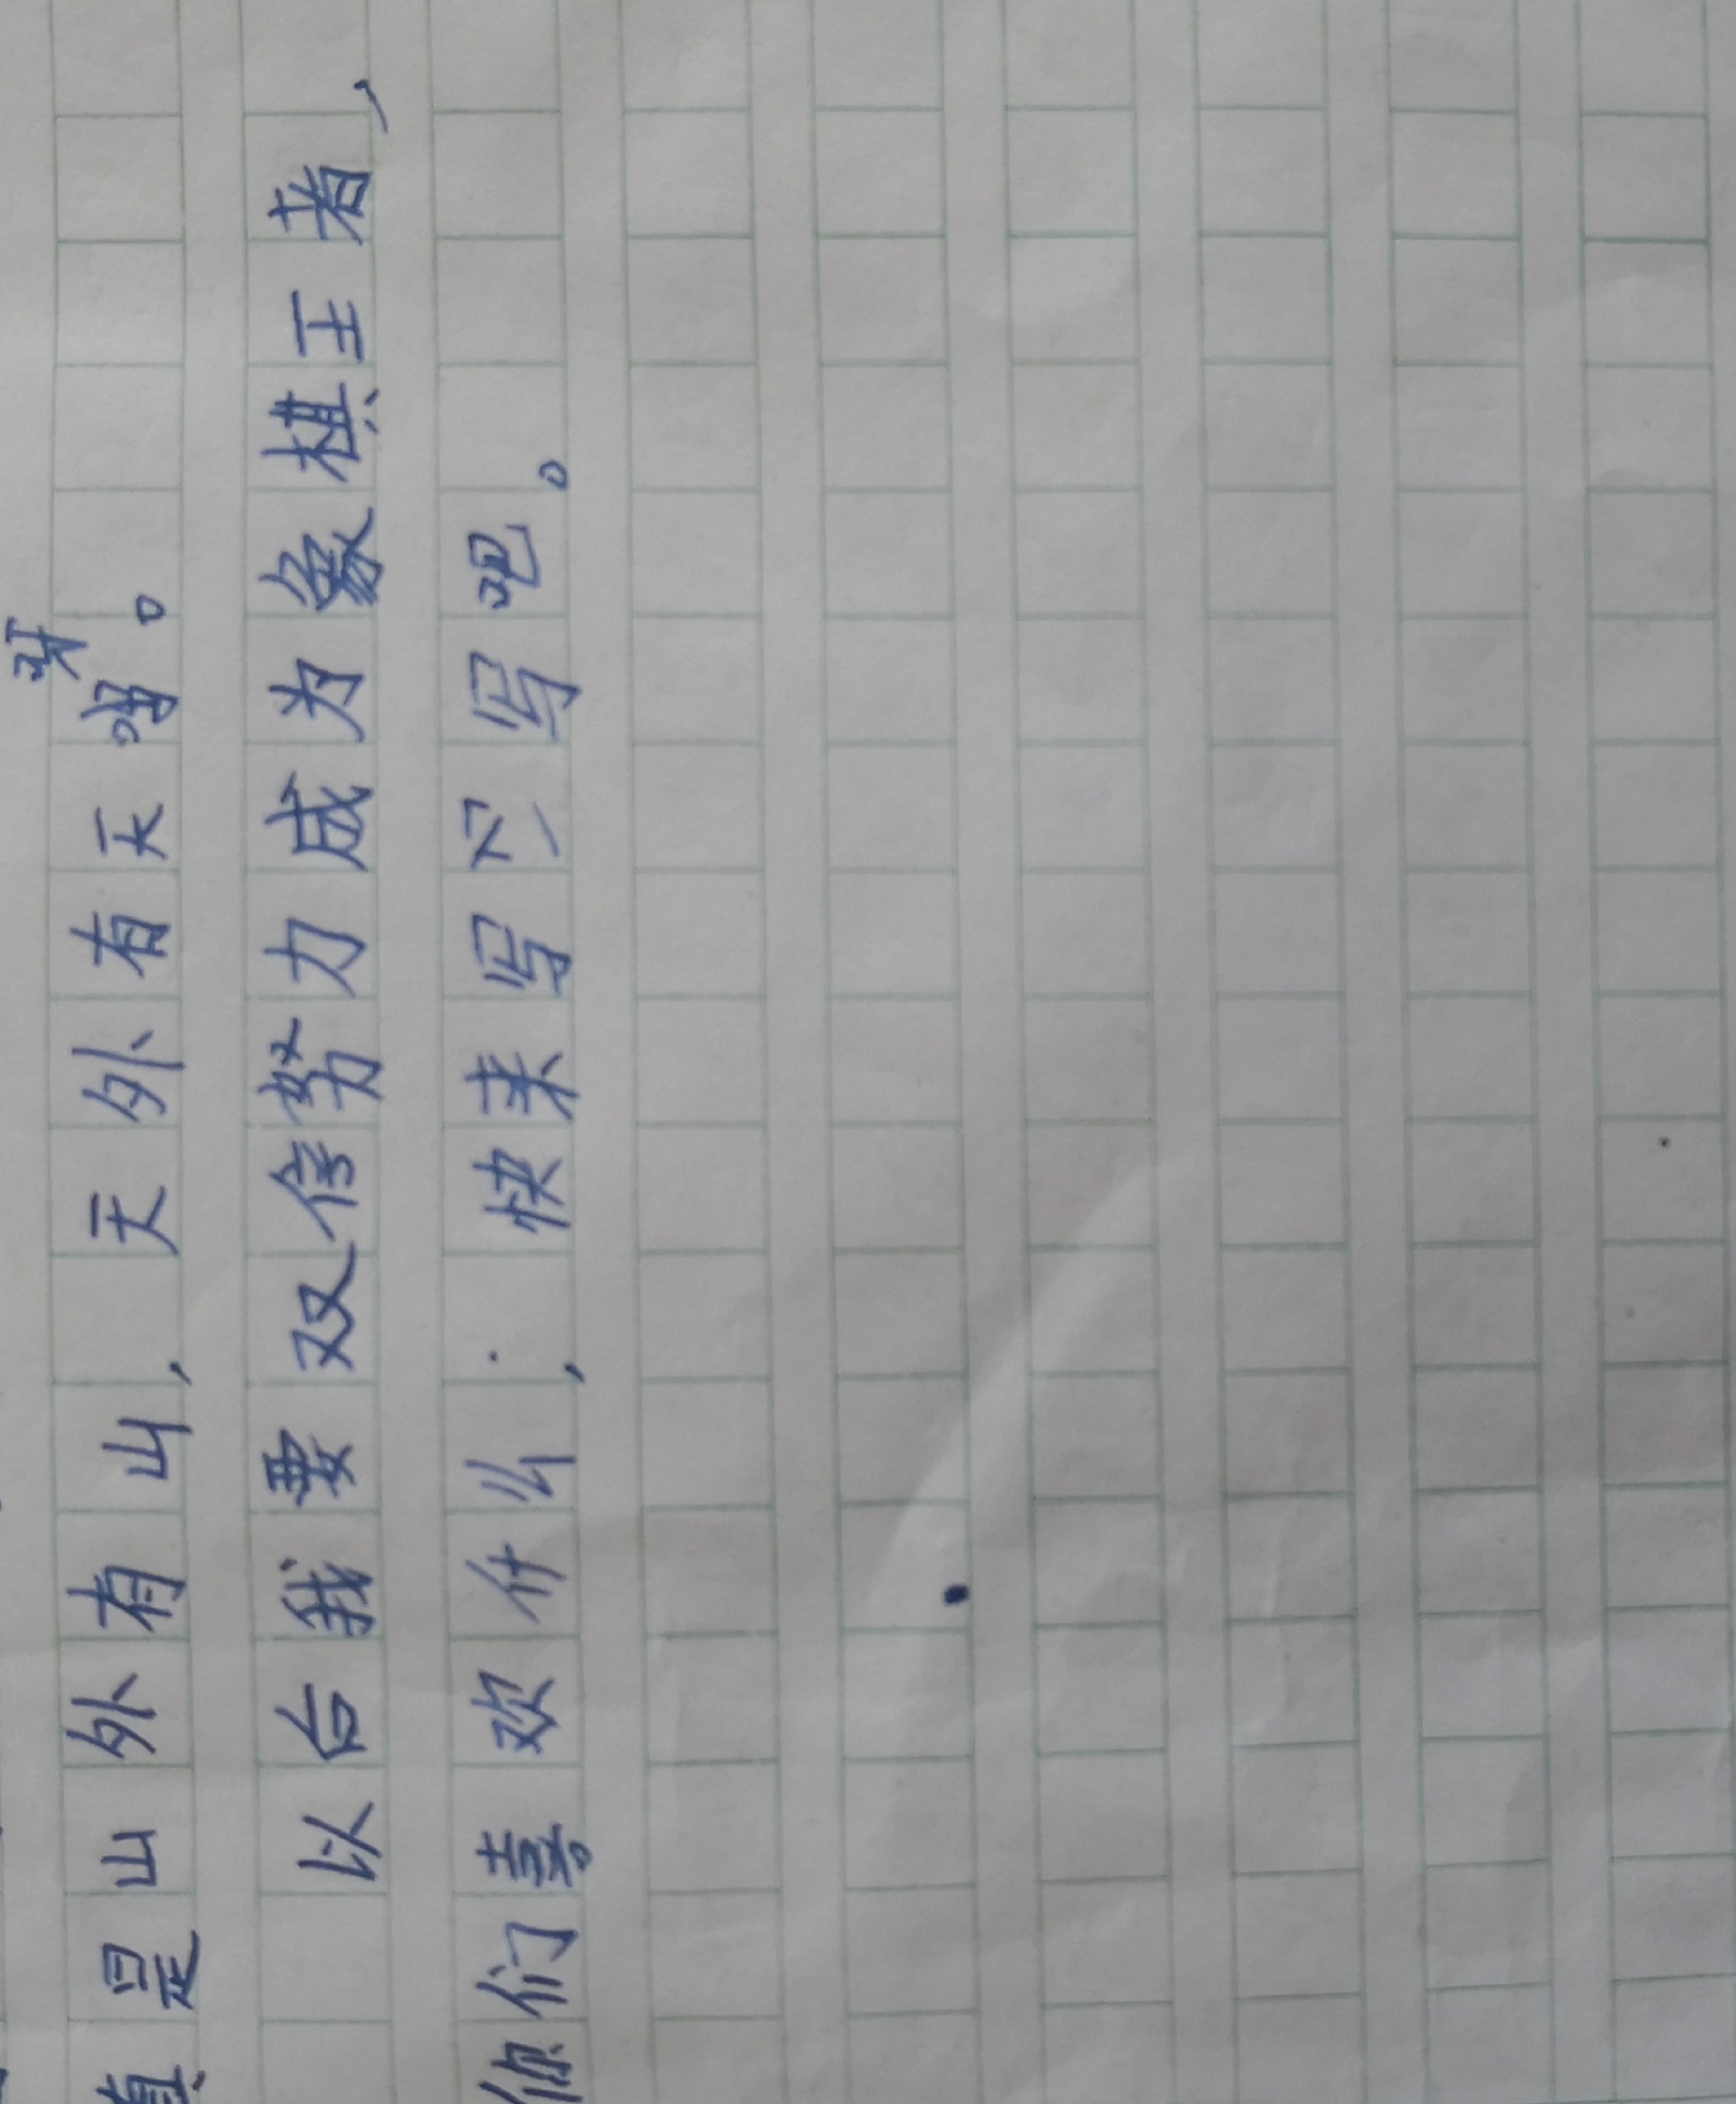 真是山外有山，天外有天呀。
以台我要双倍努力成为象棋王者，
你们喜欢什么，快来写写吧。